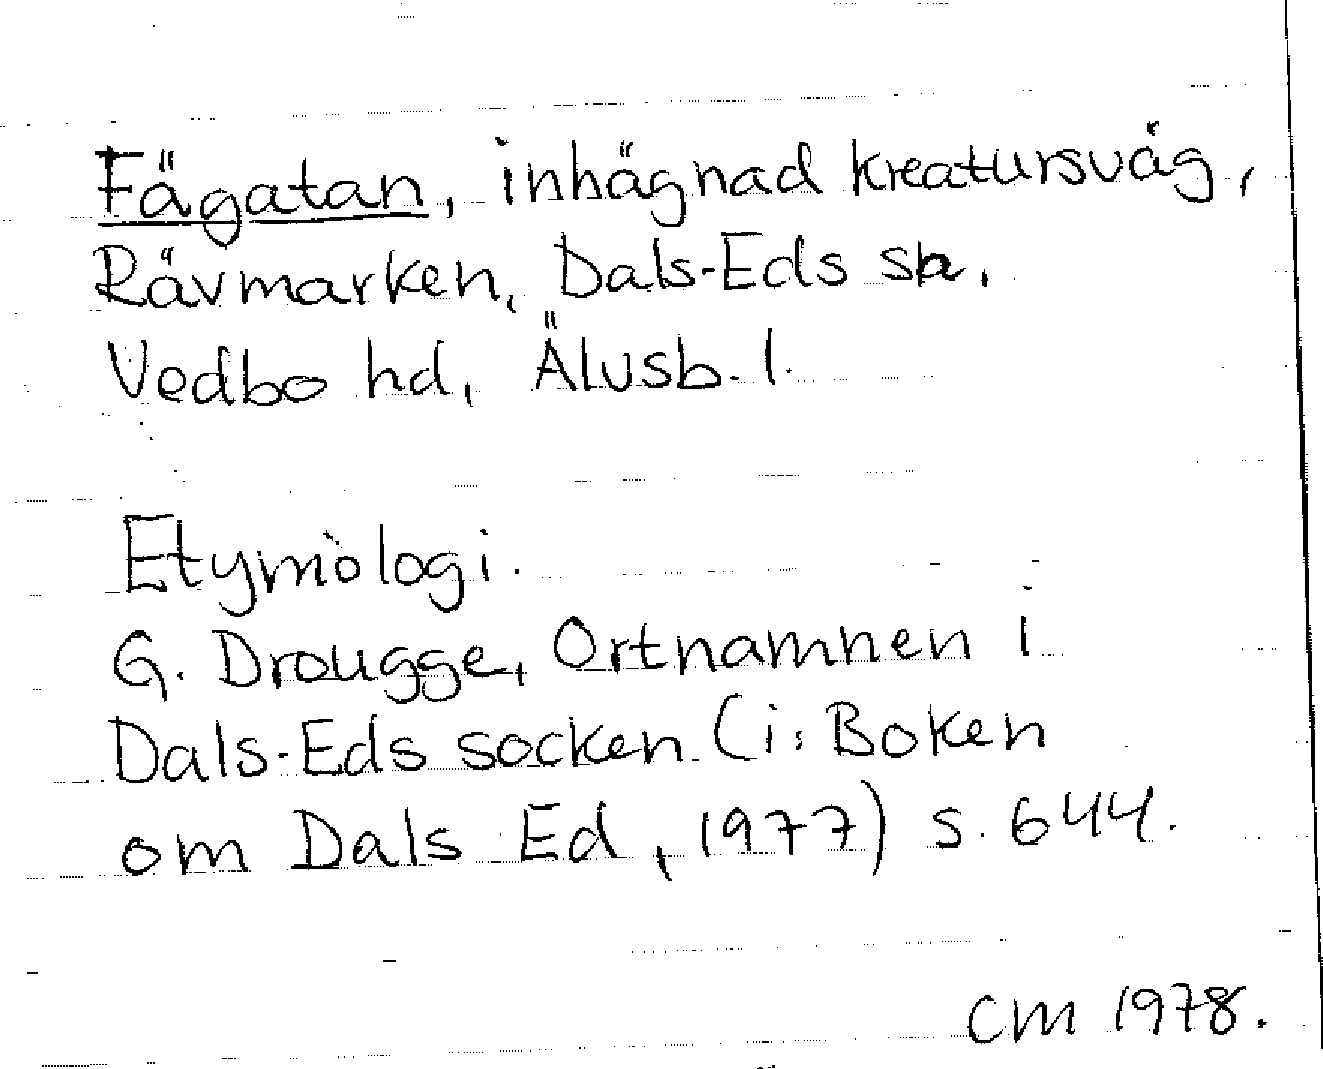 Fägatan, inhägnad kreatursväg,
Rävmarken, Dals-Eds sn,
Vedbo hd, Älvsb. l.
Etymologi.
G. Drougge, Ortnamnen i
Dals-Eds socken (i: Boken
om Dals Ed, 1977) s. 644.
CM 1978.